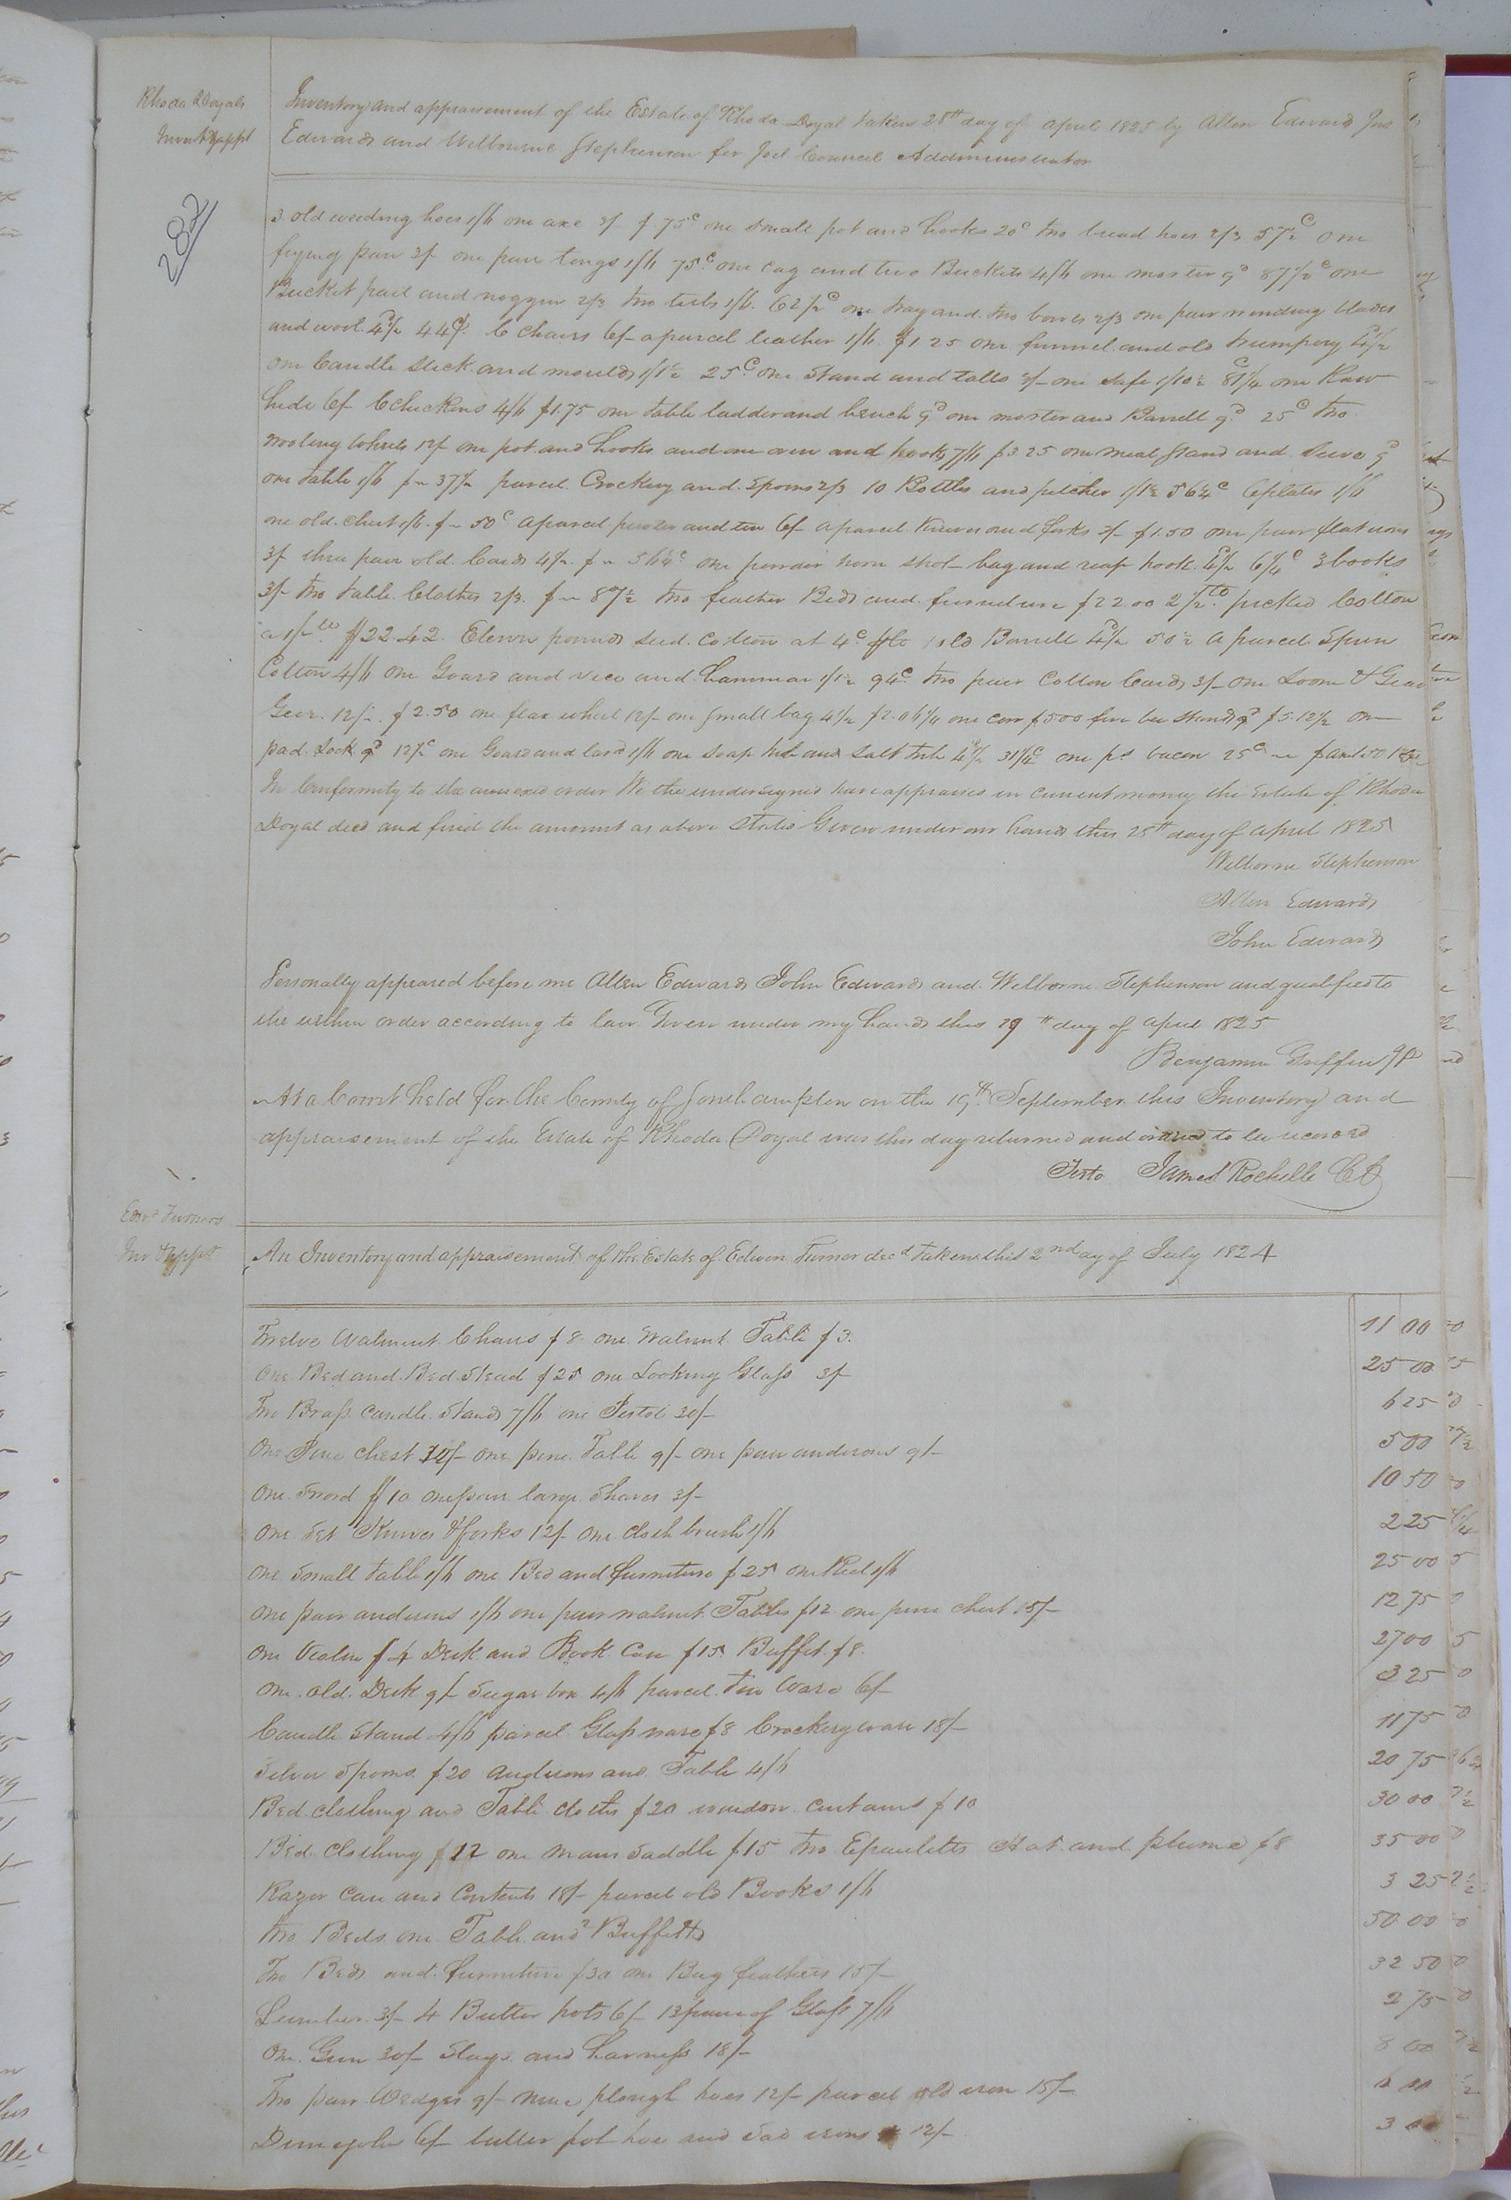 Rhoda Doyals
Invent & appt
287
Inventory and appraisement of the Estate of Rhoda Doyal taken 28th day of April 1825 by Allen Edwards Jno
Edwards and Wilbourne Stephenson for Joel Council Addministrator
3 old weeding hoes 1/6 one axe 3/ $.75c one small pot and hooks 20c two bread hoes 2/3 57½c One
frying pan 3/ one pair tongs 1/6 75c one cag and two Buckets 4/6 one morter 9d 87½c one
Bucket pail and noggin 2/3 two tubs 1/6 62½c one tray and two bowls 2/3 one pair winding blades
and wool 4½ 44c 6 chairs 6/ a parcel leather 1/6 $1.25 one funnel and old trumpery 4½
one Candle stick and moulds 1/1½ 25c one Stand and 3/ one safe 1/10½ 81¼ one Raw
hide 6/ 6 chickens 4/6 $1.75 one table ladder and bench 9d one morter and Barrell 9d 25c two
wooling wheels 12/ one pot and hooks and one oven and hooks 7/6 $3.25 one meal stand and Seive 9d
one table 1/6 $- 37½ parcel Crockery and Spoons 2/3 10 Bottles and pitcher 1/1½ 56¼c 6 plates 1/6
one old chest 1/6 $- 50c a parcel pewter and tin 6/ a parcel knives and forks 3/ $1.50 one pair flat irons
3/ three pair old Cards 4½ $- 56¼c one powder horn shot bag and reap hook 4½ 6¼c 3 books
3/ two table Clothes 2/3 $- 87½ two feather Beds and furniture $22.00 2½ lb picked Cotton
a 1/ lb $22.42 Eleven pounds seed Cotton at 4c old Barrell 4½ 50½ a parcel Spun
Cotton 4/6 one Goard and vice and hammar 1/1½ 94c two pair Cotton Cards 3/ One Loom &
Geer 12/ $2.50 one flax wheel 12/ one small bag 4½ $2.06¼ one cow $5.00 five bee stands 9d $5.12½ one
pad Lock 9d 12½c one Goard and lard 1/6 one soap tub and Salt tub 4½ 31¼c one ps bacon 25c
In Conformity to the annexed order We the undersigned have appraised in current money the Estate of Rhoda
Doyal decd and find the amount as above Stated Given under our hands this 25th day of April 1825
Wilborne Stephenson
Allen Edwards
John Edwards
Personally appeared before me Allen Edwards John Edwards and Wilborne Stephenson and qualified to
the within order according to law Given under my hand this 29th day of April 1825
Benjamin Griffin JP
At a Court held for the County of Southampton on the 19th September this Inventory and
appraisement of the Estate of Rhoda Doyal was this day returned and ordered to be recorded
Teste James Rochelle CC
Edwd Turners
Inv & appt
An Inventory and appraisement of the Estate of Edwin Turner decd taken this 2nd day of July 1824
Twelve Walnut Chairs $8 one Walnut Table $3. 11 00
One Bed and Bed Stead $25 one Looking Glass 3/ 25 00
Two Brass Candle Stands 7/6 one Pistol 30/ 6 25
One Pine Chest 12/ one pine Table 9/ one pair andirons 9/ 5 00
One Sword $10 one pair large Shears 3/ 10 50
One Set Knives & forks 12/ one cloth brush 1/6 2 25
One Small table 1/6 one Bed and furniture $25 one Reel 1/6 25 00
One pair andirons 1/6 one pair walnut Tables $12 one pine chest 15/ 12 75
One Violin $4 Desk and Book Case $15 Buffet $8 27 00
One old Desk 9/ Sugar box 4/6 parcel tin Ware 6/ 3 25
Candle Stand 4/6 parcel Glass ware $8 Crockery ware 18/ 11 75
Silver Spoons $20 andirons and Table 4/6 20 75
Bed clothing and Table cloths $20 window curtains $10 30 00
Bed Clothing $12 one mans Saddle $15 two Epaulettes Hat and plume $8 35 00
Razor Case and Contents 18/ parcel old Books 1/6 3 25
two Beds one Table and 2 Buffetts 50 00
Two Beds and furniture $30 one Bag feathers 15/ 32 50
Lumber 3/ 4 Butter pots 6/ 13 panes of Glass 7/6 2 75
One Gun 30/ Slays and harness 18/ 8 00
Two pair Wedges 9/ nine plough hoes 12/ parcel old iron 15/ 6 00
Demijohn 6/ butter pot hoe and Sad irons 12/ 3 00